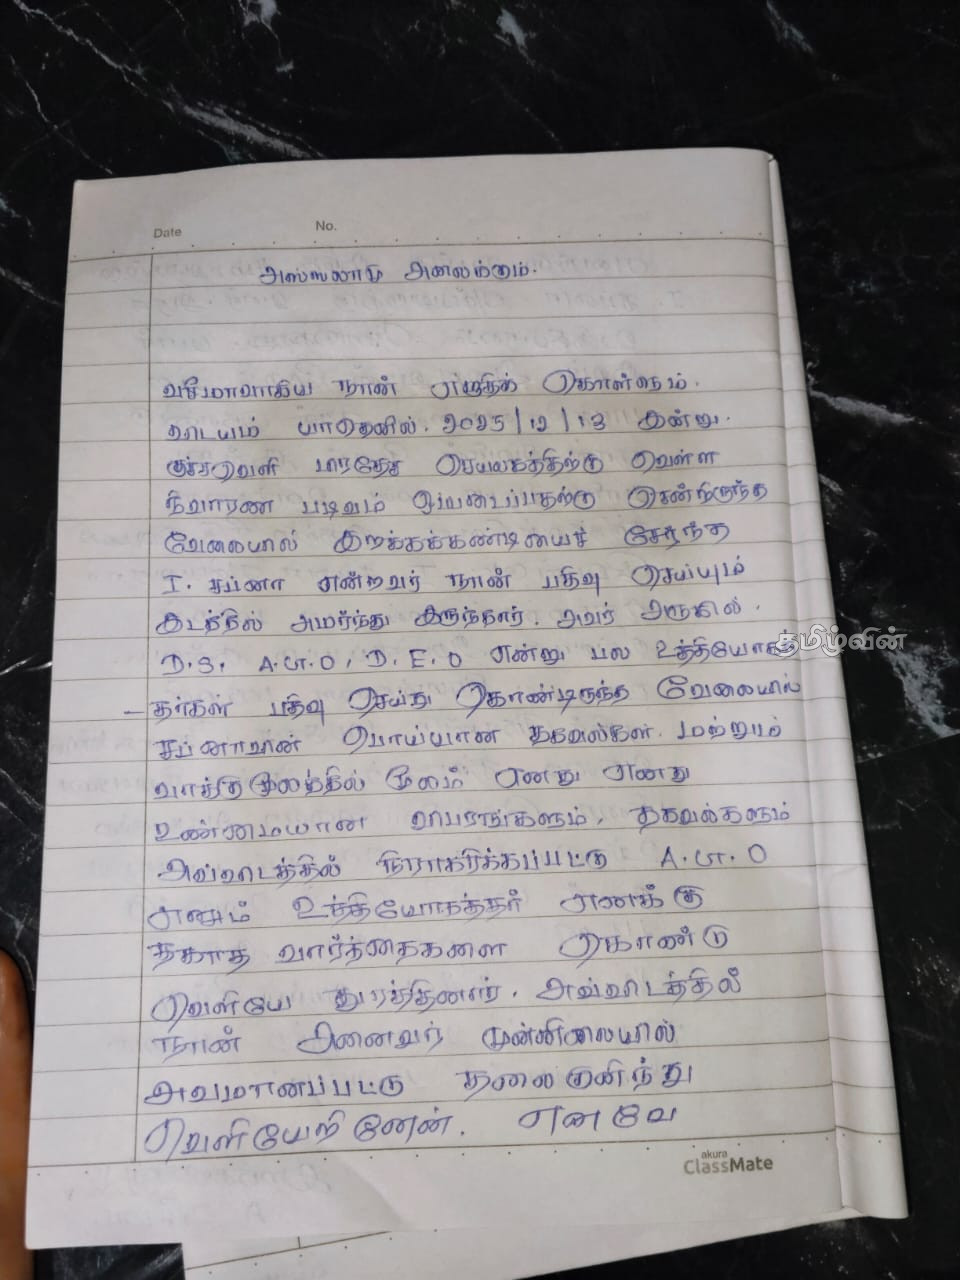 Date No.
அஸ்ஸலாமு அலைக்கும்.
நான் எழுதிக் கொள்ளும்
விடயம் யாதெனில். 2025/12/13 இன்று.
குச்சவெளி பிரதேச செயலகத்திற்கு வெள்ள
நிவாரண படிவம் ஒப்படைப்பதற்கு சென்றிருந்த
வேலையில் இறக்கக்கண்டியைச் சேர்ந்த
I. சப்னா என்றவர் நான் பதிவு செய்யும்
இடத்தில் அமர்ந்து இருந்தார். அவர் அருகில்.
D.S. A.ரா.O, D.E.O என்று பல உத்தியோகத்
தமிழ்வின்
- தர்கள் பதிவு செய்து கொண்டிருந்த வேலையில்
சப்னாவின் பொய்யான தகவல்கள். மற்றும்
மூலம் எனது எனது
உண்மையான விபரங்களும், தகவல்களும்
அவ்விடத்தில் நிராகரிக்கப்பட்டு A.ரா.O
எனும் உத்தியோகத்தர் எனக்கு
தகாத வார்த்தைகளை கொண்டு
வெளியே துரத்தினார். அவ்விடத்தில்
நான் அனைவர் முன்னிலையில்
அவமானப்பட்டு தலைகுனிந்து
வெளியேறினேன். எனவே
akura
ClassMate